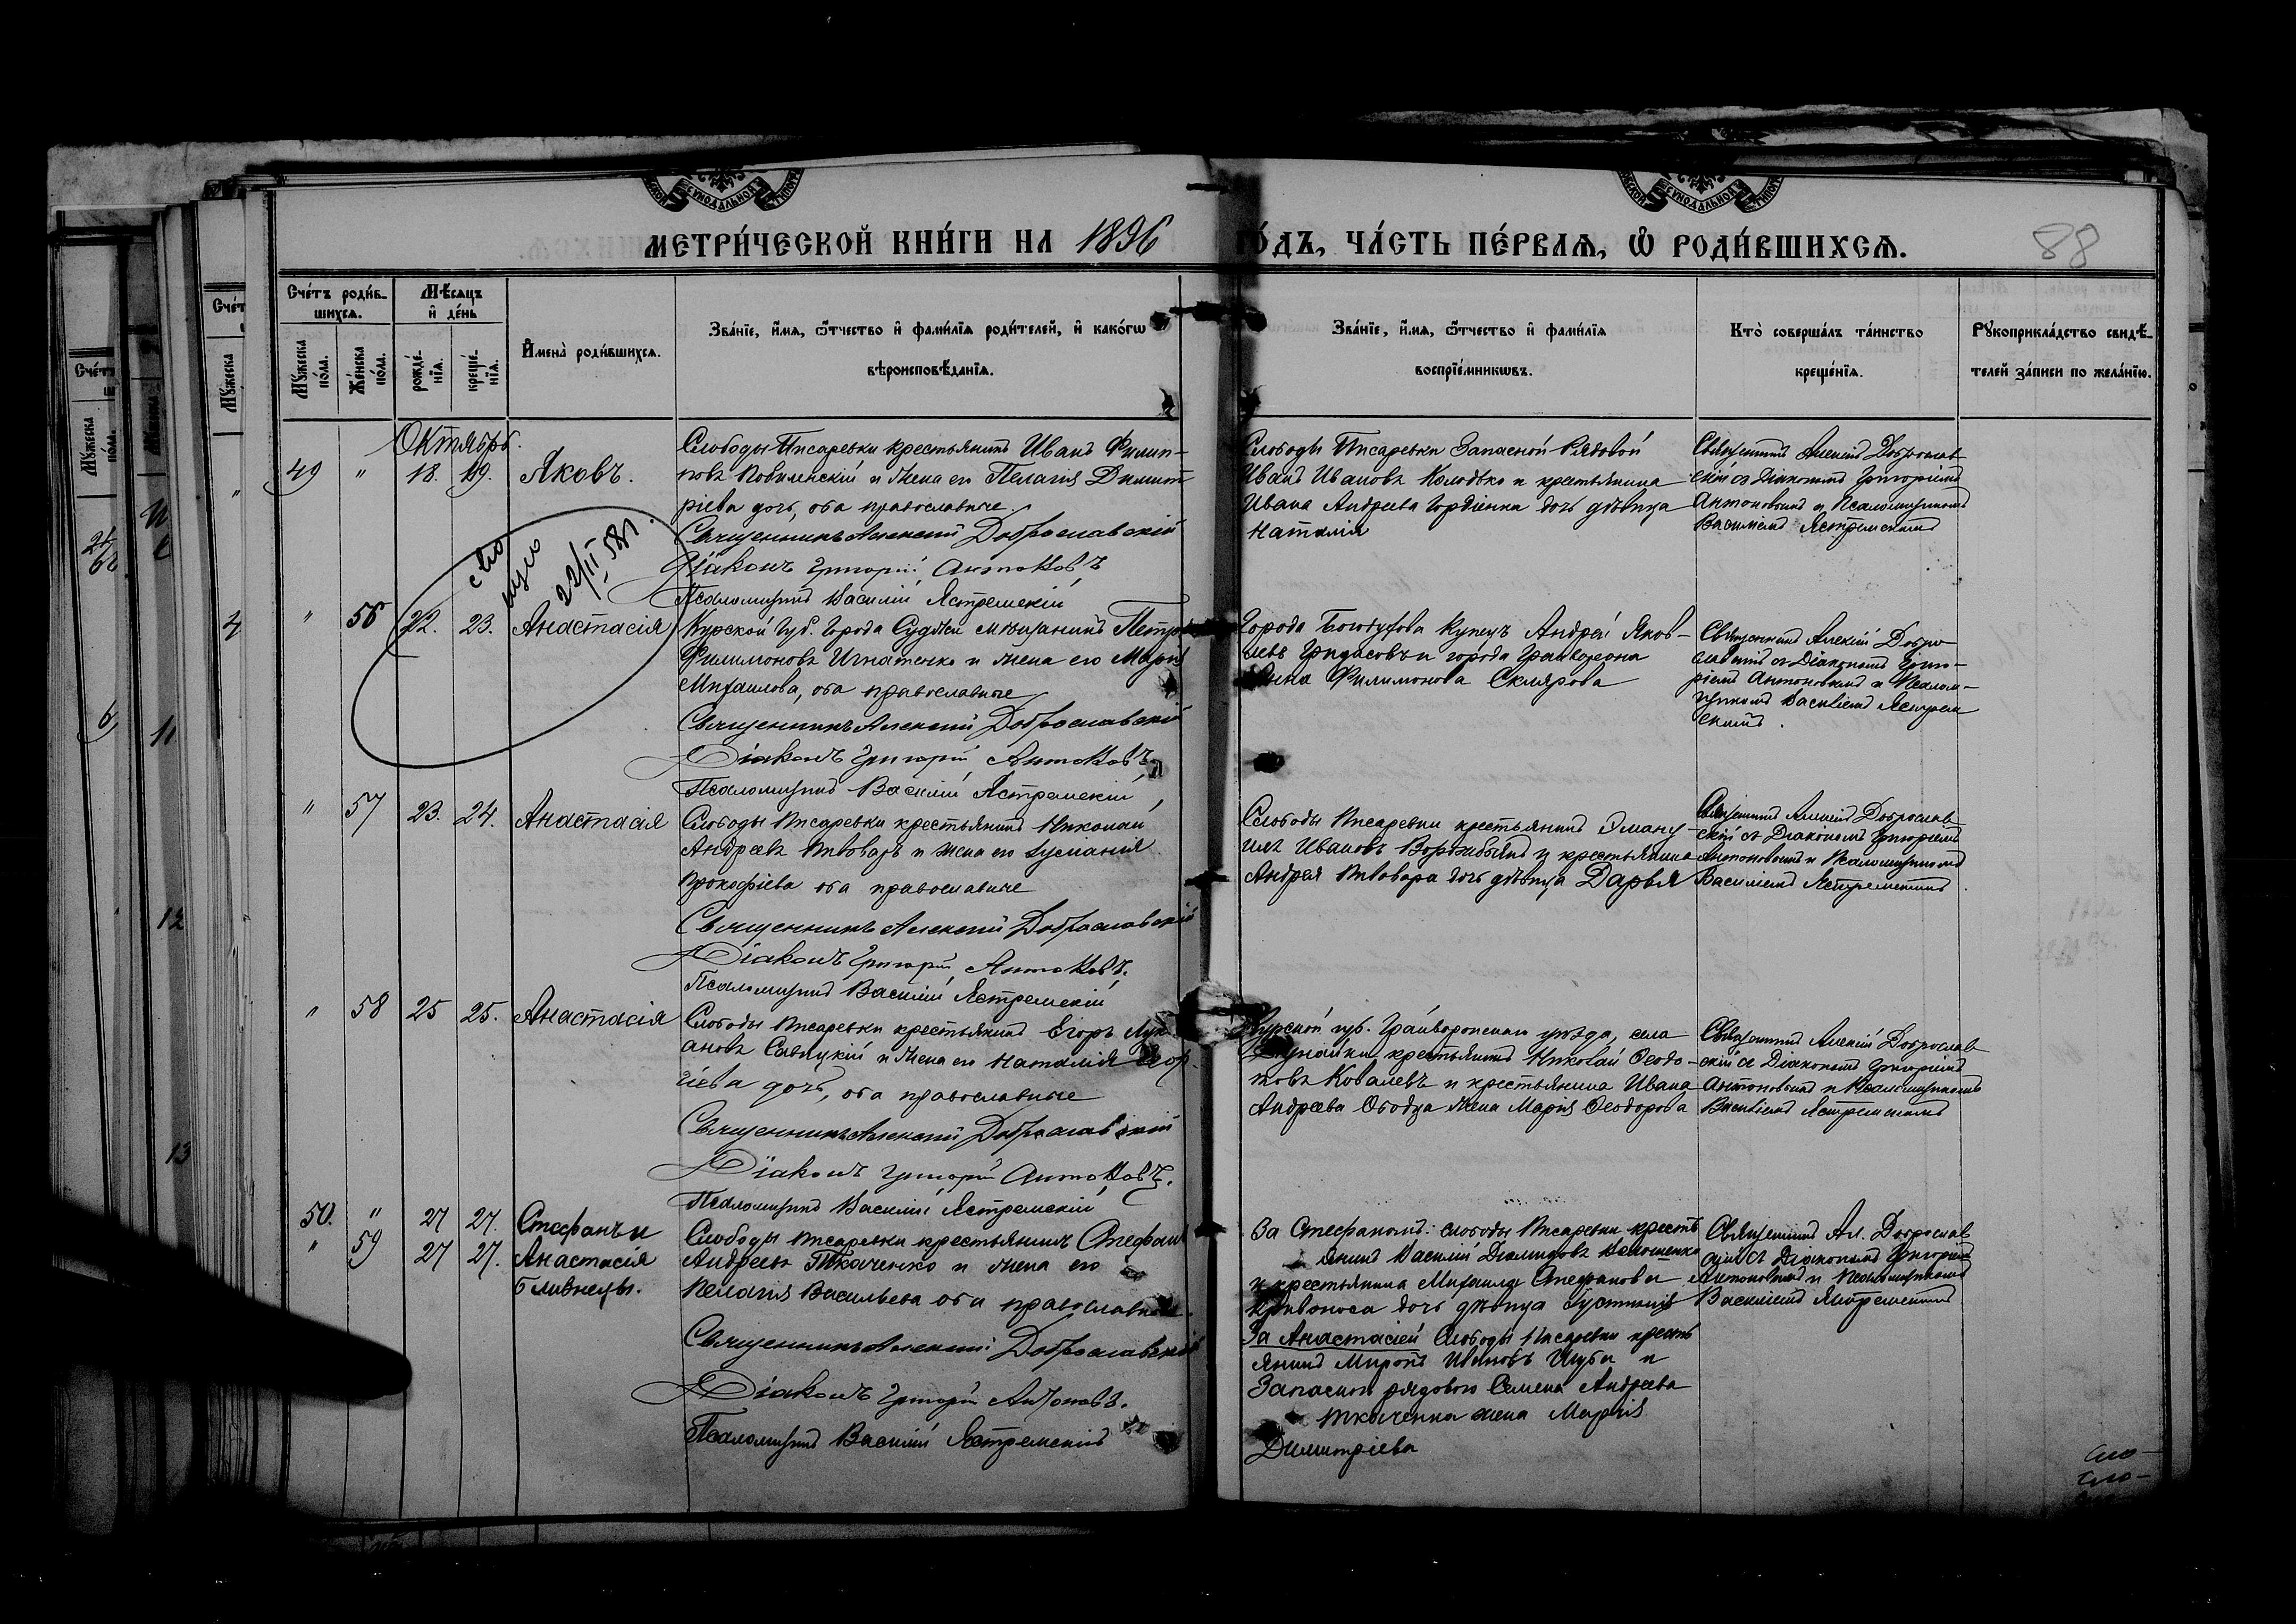 МЕТРИ́ЧЕСКОЙ КНИ́ГИ НА 1896
ГО́ДЪ, ЧА́СТЬ ПЕ́РВАѦ, Ѡ҆ РОДИ́ВШИХСѦ.
88
Сче́тъ роди́в-
шихсѧ.
Мꙋ́жеска по́ла.
Же́нска по́ла.
Мѣ́сѧцъ и҆ де́нь
рожде́-нїѧ.
креще́-нїѧ.
И҆мена̀ роди́вшихсѧ.
Зва́нїе, и҆́мѧ, ѻ҆́тчество и҆ фами́лїѧ роди́телей, и҆ како́гѡ
вѣроисповѣ́данїѧ.
Зва́нїе, и҆́мѧ, ѻ҆́тчество и҆ фами́лїѧ
воспрїе́мникѡвъ.
Кто̀ соверша́лъ та́инство
креще́нїѧ.
Рꙋкоприкла́дство свидѣ́-
телей за́писи по жела́нїю.
Октябрь.
49 " 18. 19. Яковъ.
Слободы Писаревки крестьянинъ Иванъ Филип-
повъ и жена его Пелагія Димит-
ріева дочь, оба православные
Священникъ Алексій Доброславскій
Діаконъ Григорій Антоновъ
Псаломщикъ Василій Ястремскій
Слободы Писаревки Запасной Рядовой
Иванъ Ивановъ Колодко и крестьянина
Ивана Андреева Гордіенка дочь дѣвица
Наталія
Священникъ Алексій Доброслав-
скій съ Діакономъ Григоріемъ
Антоновымъ и Псаломщикомъ
Василіемъ Ястремскимъ
22/II 58г.
" 56 22. 23. Анастасія
Курской Губ. города Суджи мѣщанинъ Петръ
Филимоновъ Игнатенко и жена его Марія
Михаилова, оба православные
Священникъ Алексій Доброславскій
Діаконъ Григорій Антоновъ
Псаломщикъ Василій Ястремскій
Города Богодухова Купецъ Андрей Яков-
левъ и города Грайворона
Анна Филимонова Склярова
Священникъ Алексій Добро-
славскій съ Діакономъ Григо-
ріемъ Антоновымъ и Псалом-
щикомъ Василіемъ Ястрем
скимъ.
" 57 23. 24. Анастасія
Слободы Писаревки крестьянинъ Николай
Андреевъ Пивоваръ и жена его
Прокофіева оба православные
Священникъ Алексій Доброславскій
Діаконъ Григорій Антоновъ.
Псаломщикъ Василій Ястремскій
Слободы Писаревки крестьянинъ Эману-
илъ Ивановъ и крестьянина
Андрея Пивовара дочь дѣвица Дарья
Священникъ Алексій Доброслав-
скій съ Діакономъ Григоріемъ
Антоновымъ и Псаломщикомъ
Василіемъ Ястремскимъ
" 58 25 25. Анастасія
Слободы Писаревки крестьянинъ Егоръ Лукі-
ановъ Савицкій и жена его Наталія Геор-
гіева дочь, оба православные
Священникъ Алексій Доброславскій
Діаконъ Григорій Антоновъ.
Псаломщикъ Василій Ястремскій
Курской губ. Грайворонскаго уѣзда, села
Дунайки крестьянинъ Николай Ѳеодо-
товъ Ковалевъ и крестьянина Ивана
Андреева жена Марія Ѳеодорова
Священникъ Алексій Доброслав
скій съ Діакономъ Григоріемъ
Антоновымъ и Псаломщикомъ
Василіемъ Ястремскимъ
50. " 27 27. Стефанъ и
" 59 27 27. Анастасія
близнецы.
Слободы Писаревки крестьянинъ Стефанъ
Андреевъ Ткаченко и жена его
Пелагія Васильева оба православные
Священникъ Алексій Доброславскій
Діаконъ Григорій Антоновъ.
Псаломщикъ Василій Ястремскій
За Стефаномъ: слободы Писаревки кресть
янинъ Василій
и крестьянина Михаила Стефанова
Кривоноса дочь дѣвица
За Анастасіей Слободы Писаревки кресть
янинъ Миронъ Ивановъ Шуба и
Запаснаго рядового Семена Андреева
Ткаченка жена Марія
Димитріева
Священникъ Ал. Доброслав
скій съ Діакономъ Григоріемъ
Антоновымъ и Псаломщикомъ
Василіемъ Ястремскимъ